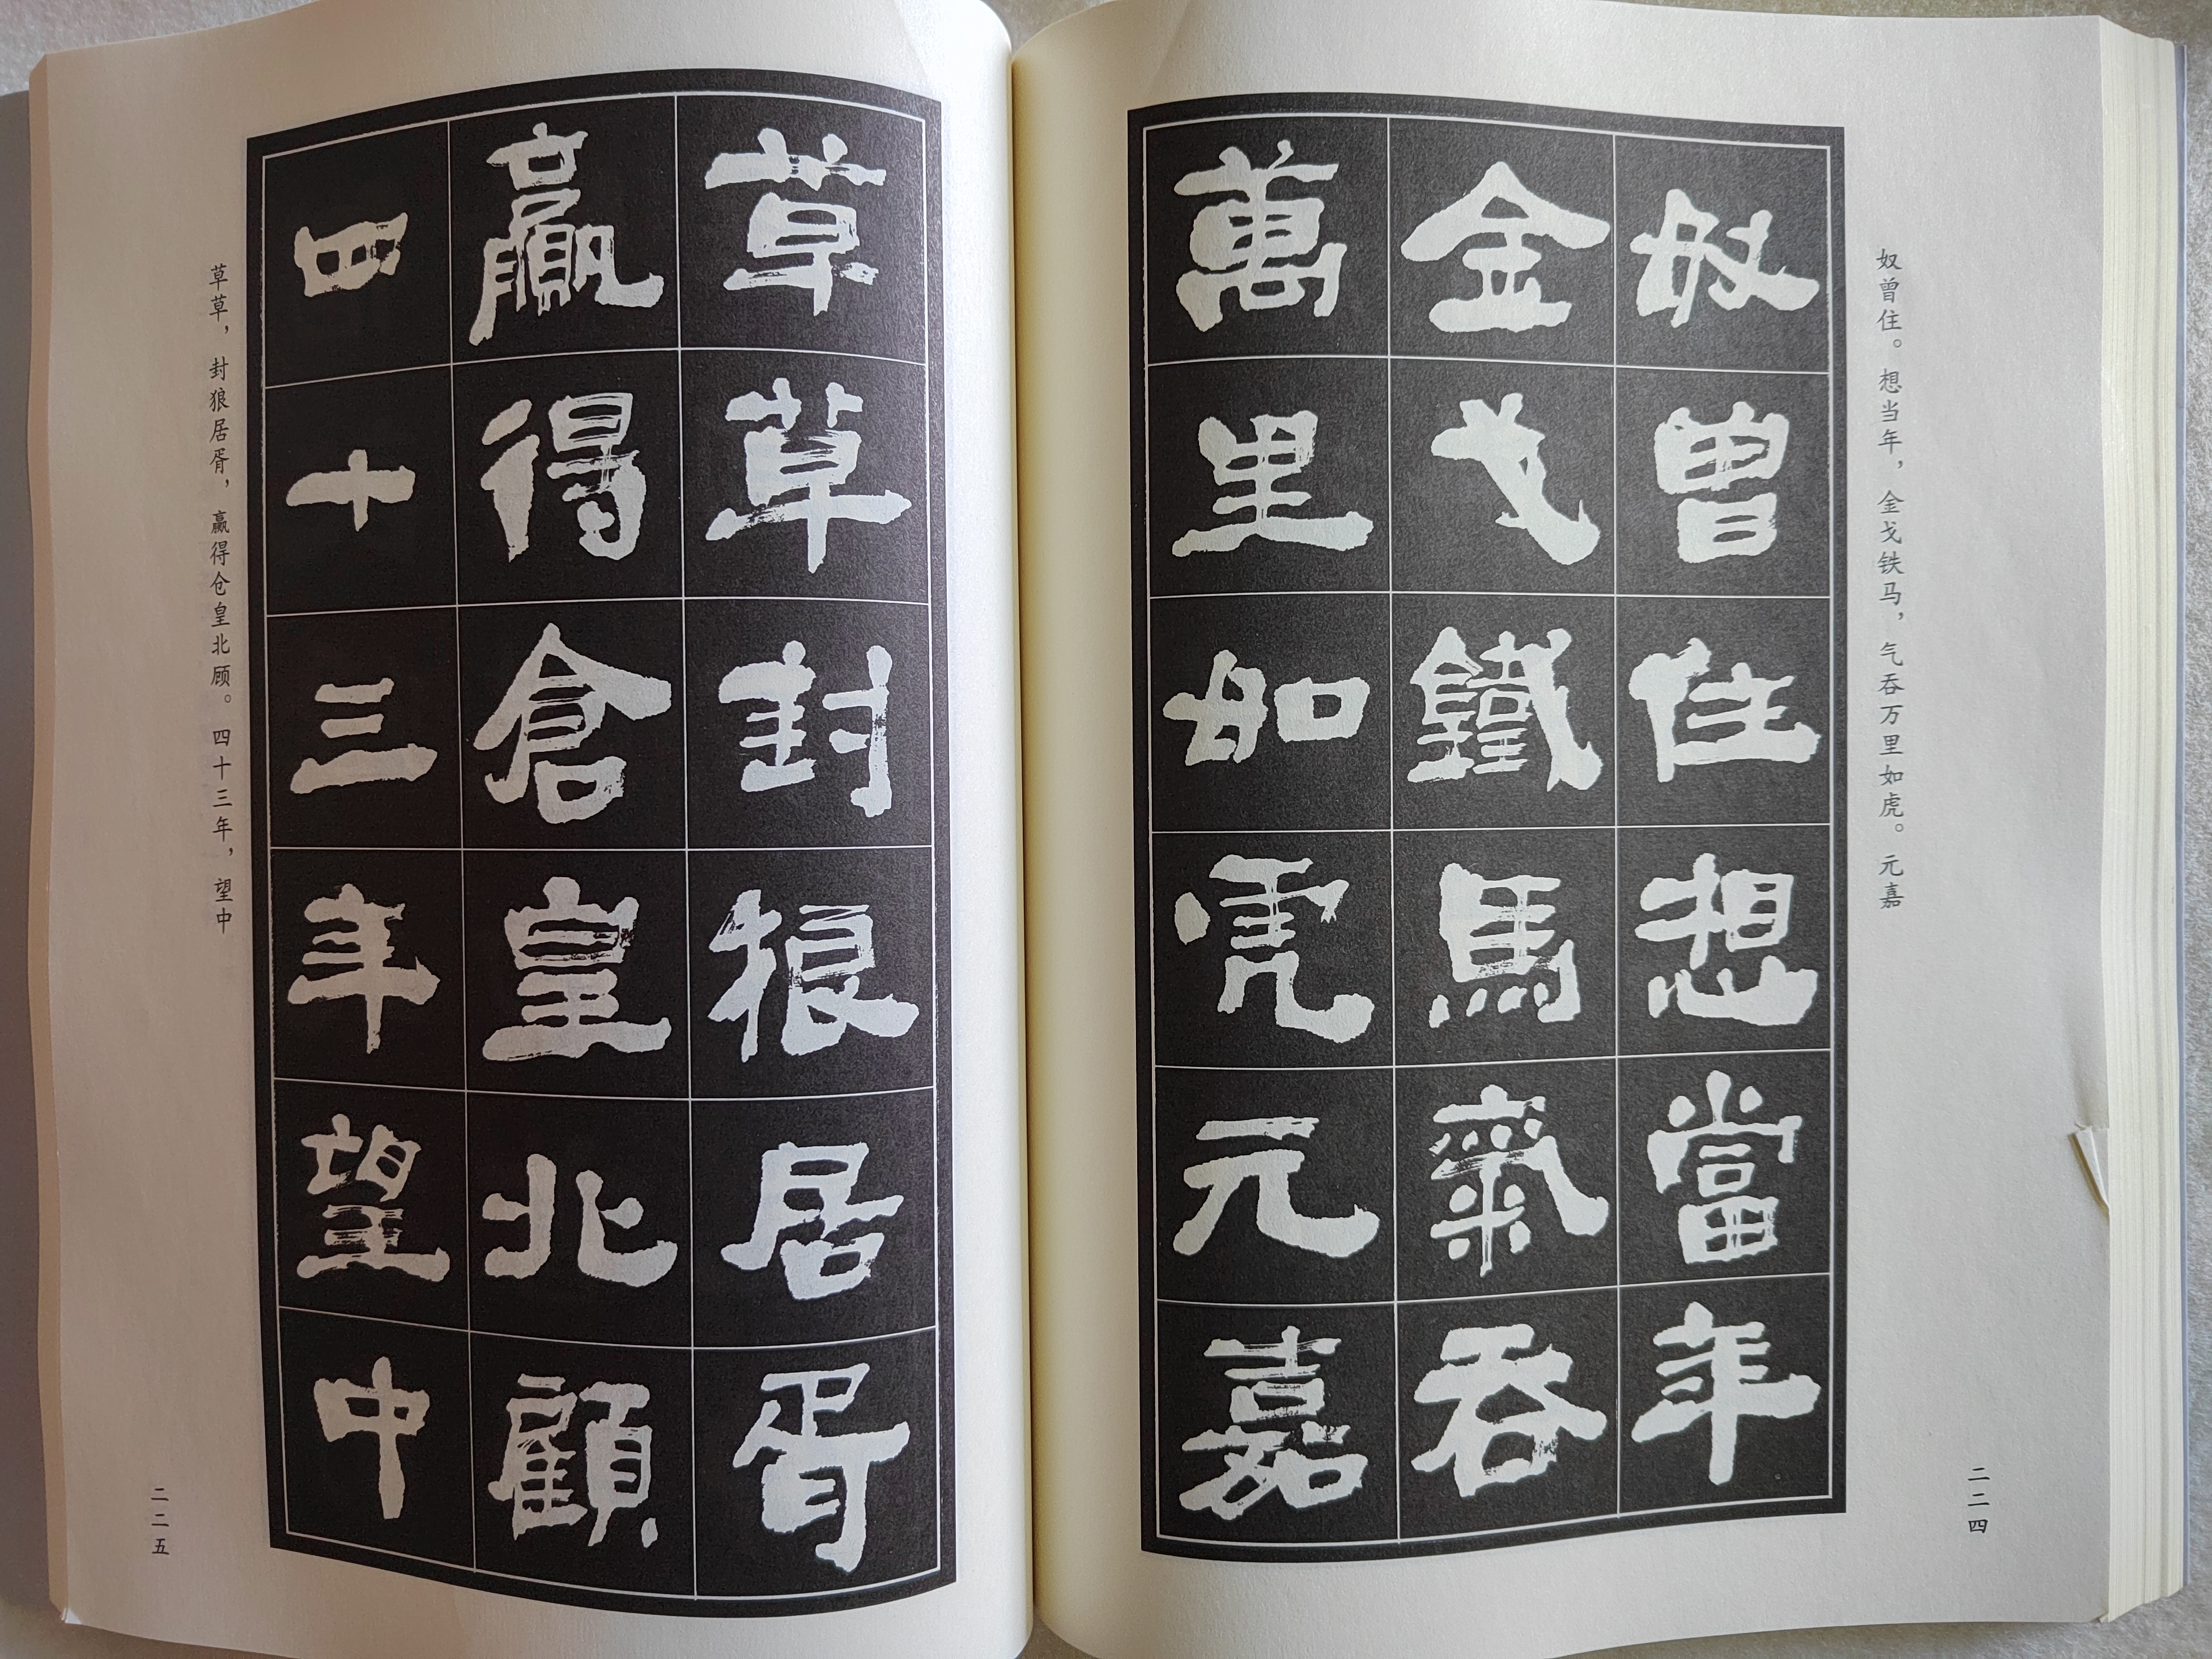 奴曾住。想当年，金戈铁马，气吞万里如虎。元嘉
奴曾住想當年
金戈鐵馬氣吞
萬里如虎元嘉
二二四
草草封狼居胥
贏得倉皇北顧
四十三年望中
草草，封狼居胥，赢得仓皇北顾。四十三年，望中
二二五